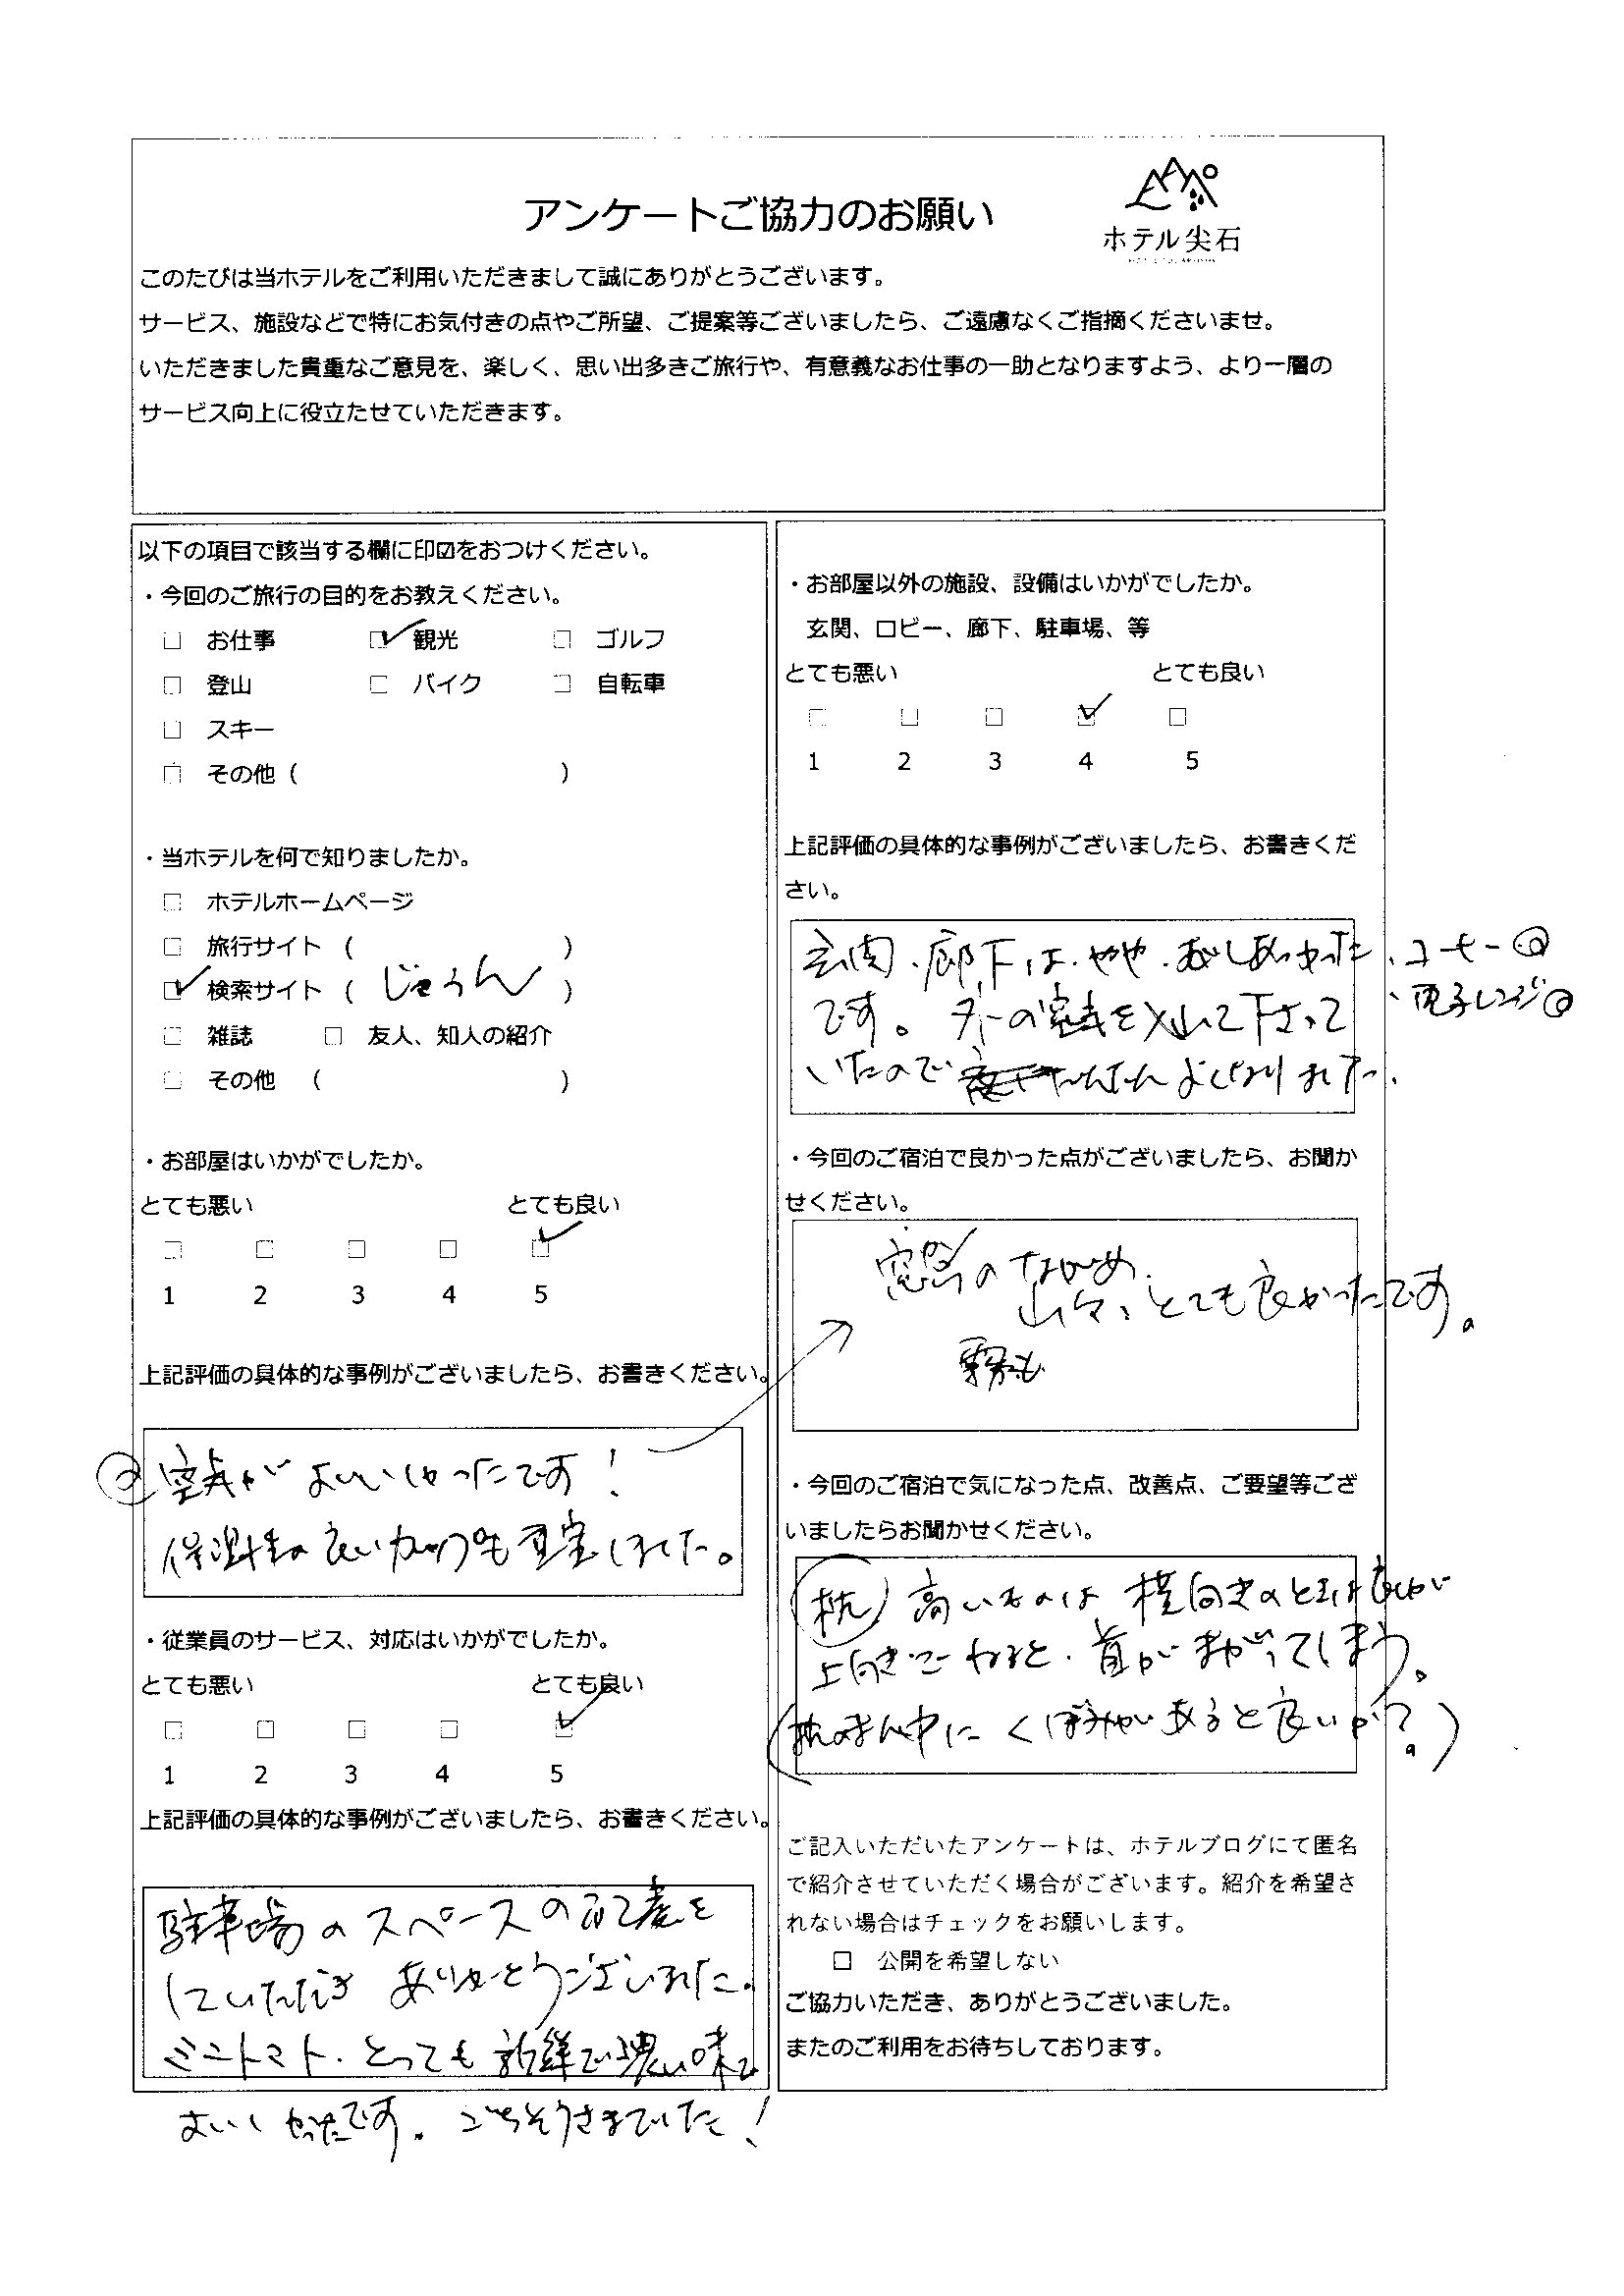 アンケートご協力のお願い
ホテル尖石
このたびは当ホテルをご利用いただきまして誠にありがとうございます。
サービス、施設などで特にお気付きの点やご所望、ご提案等ございましたら、ご遠慮なくご指摘くださいませ。
いただきました貴重なご意見を、楽しく、思い出多きご旅行や、有意義なお仕事の一助となりますよう、より一層の
サービス向上に役立たせていただきます。
以下の項目で該当する欄に印☑をおつけください。
・今回のご旅行の目的をお教えください。
□ お仕事 ☑ 観光 □ ゴルフ
□ 登山 □ バイク □ 自転車
□ スキー
□ その他 ( )
・当ホテルを何で知りましたか。
□ ホテルホームページ
□ 旅行サイト ( )
☑ 検索サイト ( じゃらん )
□ 雑誌 □ 友人、知人の紹介
□ その他 ( )
・お部屋はいかがでしたか。
とても悪い とても良い
□ □ □ □ ☑
1 2 3 4 5
上記評価の具体的な事例がございましたら、お書きください。
空気がおいしかったです!
保温性の良いカップも重宝しました。
・従業員のサービス、対応はいかがでしたか。
とても悪い とても良い
□ □ □ □ ☑
1 2 3 4 5
上記評価の具体的な事例がございましたら、お書きください。
駐車場のスペースの配慮を
していただき ありがとうございました。
ミニトマト、とっても新鮮で濃い味で
おいしかったです。ごちそうさまでした!
・お部屋以外の施設、設備はいかがでしたか。
玄関、ロビー、廊下、駐車場、等
とても悪い とても良い
□ □ □ ☑ □
1 2 3 4 5
上記評価の具体的な事例がございましたら、お書きくだ
さい。
玄関、廊下は、やや、
です。外の空気を入れて下さって
いたので だんだんよくなりました。
、コーヒー◎
、電子レンジ◎
・今回のご宿泊で良かった点がございましたら、お聞か
せください。
窓からのながめ
山々、とても良かったです。
霧も
・今回のご宿泊で気になった点、改善点、ご要望等ござ
いましたらお聞かせください。
枕 高いものは横向きのときは良いが
上向きでねると、首がまがってしまう。
(枕のまん中にくぼみがあると良いか?)
ご記入いただいたアンケートは、ホテルブログにて匿名
で紹介させていただく場合がございます。紹介を希望さ
れない場合はチェックをお願いします。
□ 公開を希望しない
ご協力いただき、ありがとうございました。
またのご利用をお待ちしております。